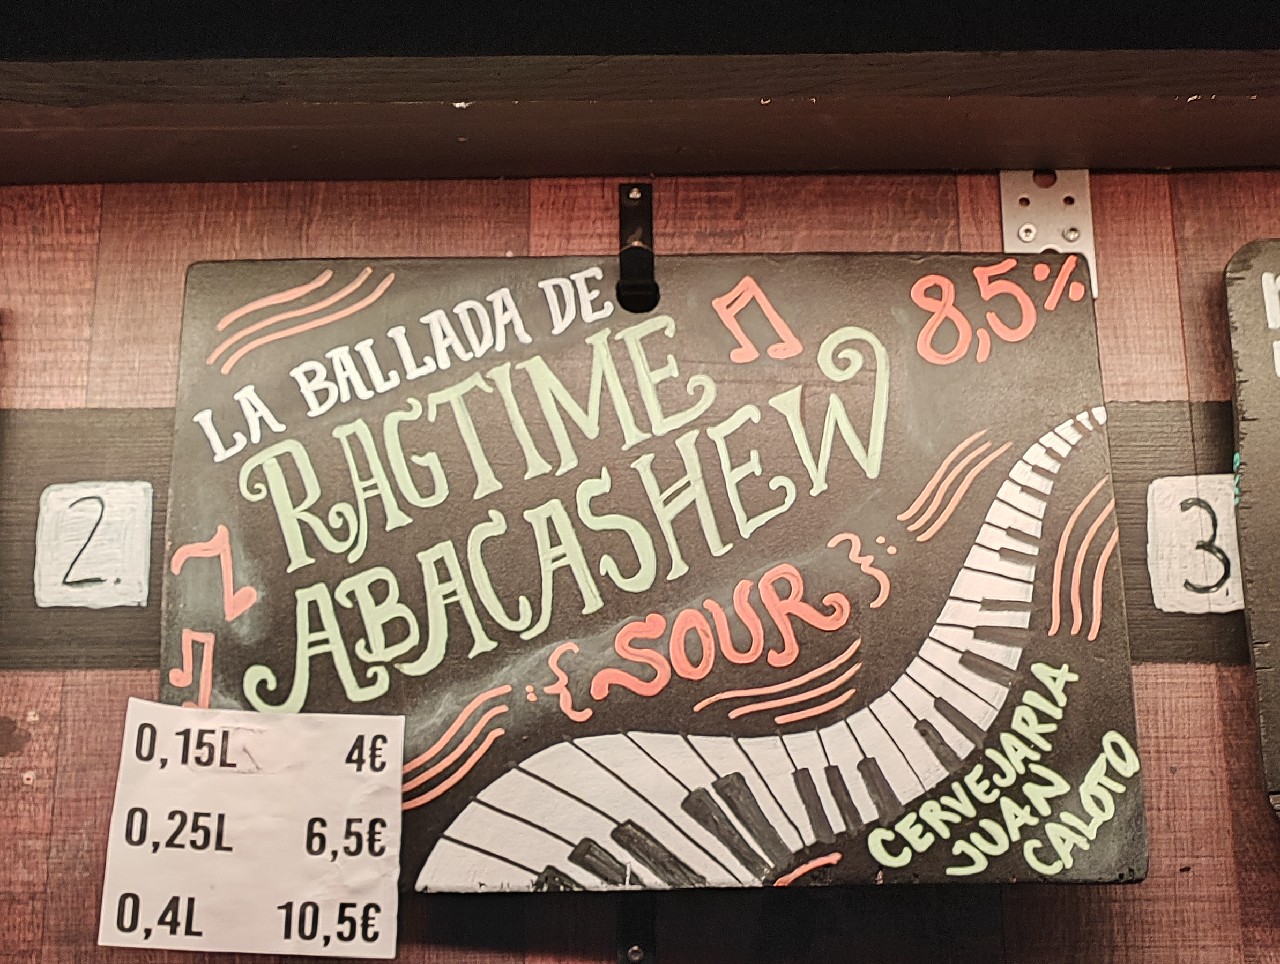 LA BALLADA DE
RAGTIME
ABACASHEW
8,5%
:{SOUR}:
CERVEJARIA
JUAN
CALOTO
2.
3.
0,15L 4€
0,25L 6,5€
0,4L 10,5€